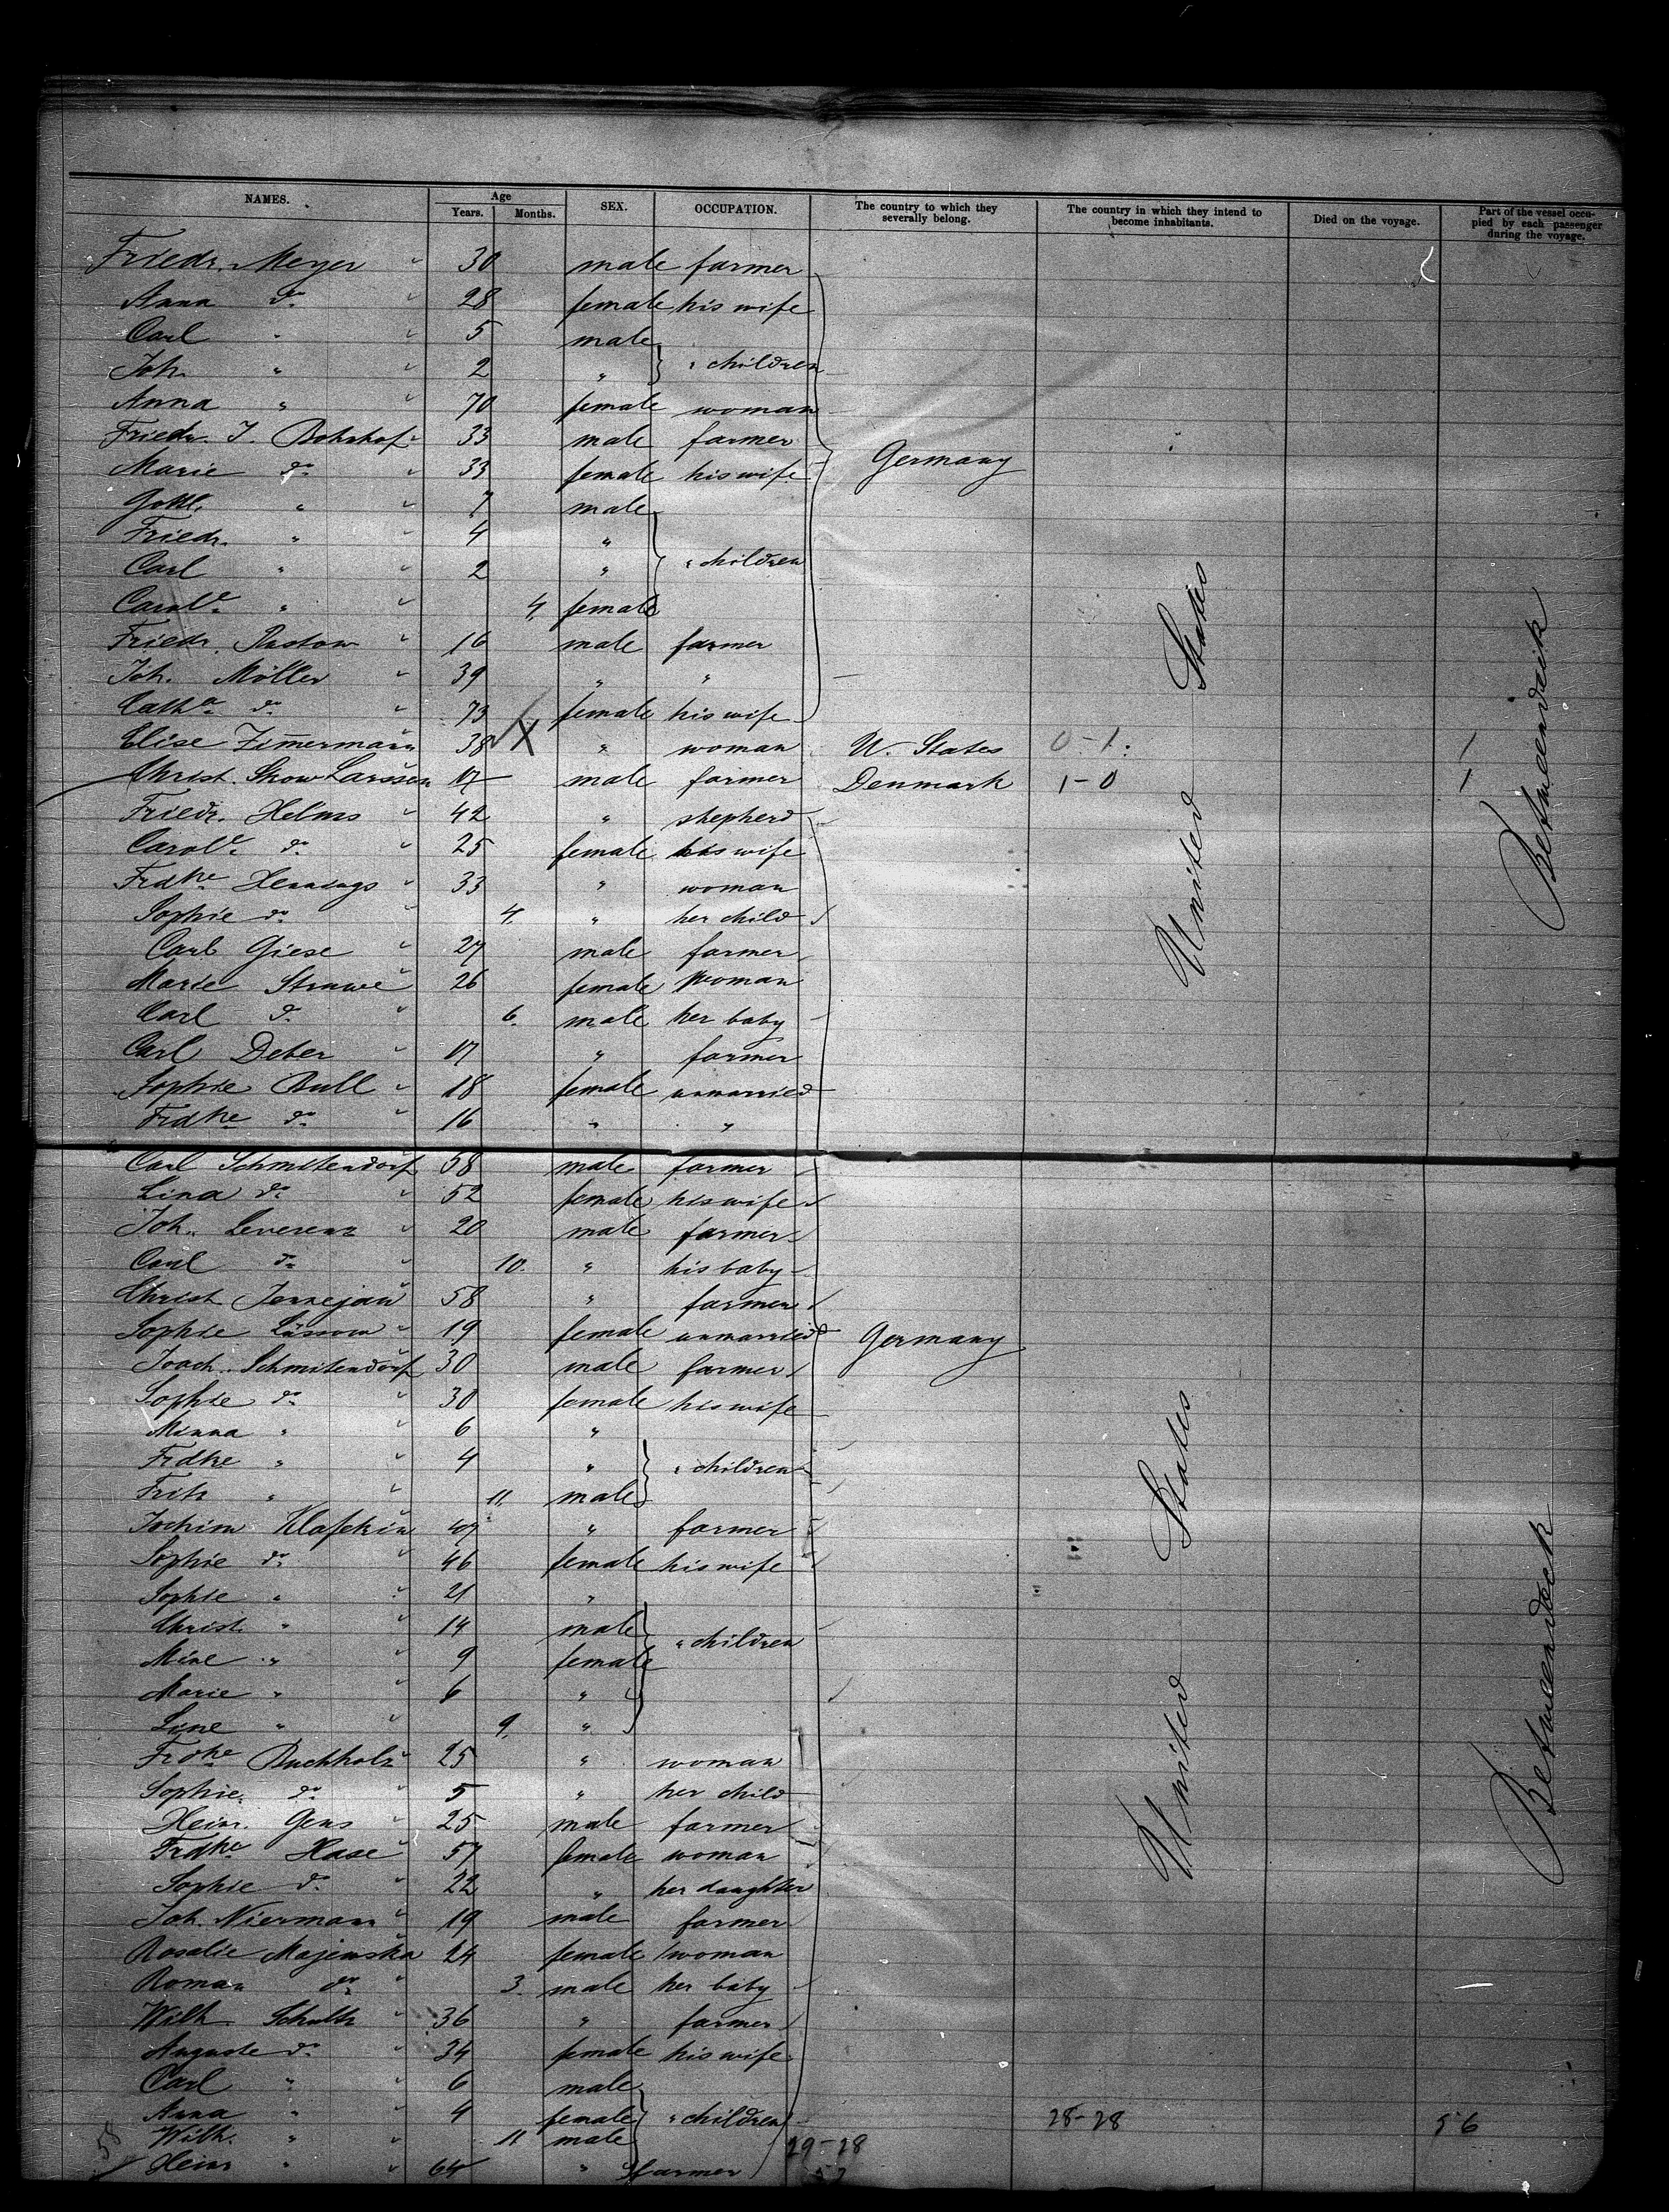 NAMES. Age SEX. OCCUPATION. The country to which they severally belong. The country in which they intend to become inhabitants. Died on the voyage. Part of the vessel occupied by each passenger during the voyage.
Years. Months.
Friedr. Meyer 30 male farmer
Anna do 28 female his wife
Carl " 5 male
Joh. " 2 " " children
Anna " 70 female woman
Friedr. J. Bohrhof 33 male farmer
Marie do 33 female his wife Germany
Gottl. " 7 male
Friedr. " 4 "
Carl " 2 " " children
Carole " 4 female
Friedr. Pastow 16 male farmer
Joh. Möller 39 " "
Cathe do 73 female his wife
Elise Zimermann 38 X " woman U. States 0-1 1
Christ. Skow Larssen 17 male farmer Denmark 1-0 1
Friedr. Helms 42 " shepherd
Carole do 25 female his wife
Frdke Hennings 33 " woman
Sophie do 4 " her child
Carl Giese 27 male farmer
Marie Struwe 26 female woman
Carl do 6 male her baby
Carl Deter 17 " farmer
Sophie Bull 18 female unmarried
Frdke do 16 " "
United States
Betweendeck
Carl Schmitendorf 58 male farmer
Lina do 52 female his wife
Joh. Leverenz 20 male farmer
Carl do 10 " his baby
Christ 58 " farmer
Sophie Lüssow 19 female unmarried Germany
Joach. Schmitendorf 30 male farmer
Sophie do 30 female his wife
Minna " 6 "
Frdke " 4 " " children
Fritz " 11 male
Jochim Klafekin 47 " farmer
Sophie do 46 female his wife
Sophie " 21 "
Christ. " 14 male " children
Mine " 9 female
Marie " 6 "
Line " 9 "
Frdke Buchholz 25 " woman
Sophie do 5 " her child
Heinr. Gens 25 male farmer
Frdke Hase 57 female woman
Sophie do 22 " her daughter
Joh. Niermann 19 male farmer
Rosalie Majewska 24 female woman
Roman do 3 male her baby
Wilh. Schultz 36 " farmer
Auguste do 34 female his wife
Carl " 6 male
Anna " 4 female " children 28-28 56
Wilh. " 11 male 29-28
58 Heinr " 64 " farmer
United States
Betweendeck